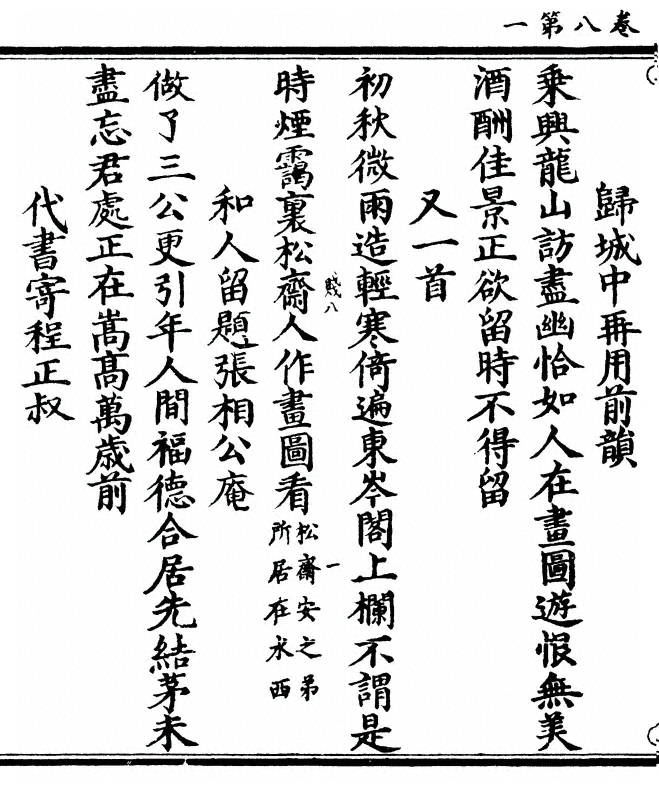 卷八第一
歸城中再用前韻
乗興龍山訪盡幽恰如人在畫圖遊恨無美
酒酬佳景正欲留時不得留
又一首
初秋微雨造輕寒倚遍東岑閣上欄不謂是
時煙靄裏松齋人作畫圖看
松齋安之弟
所居在水西
一
踐八
和人留題張相公庵
做了三公更引年人間福德合居先結茅未
盡忘君處正在嵩高萬歲前
代書寄程正叔